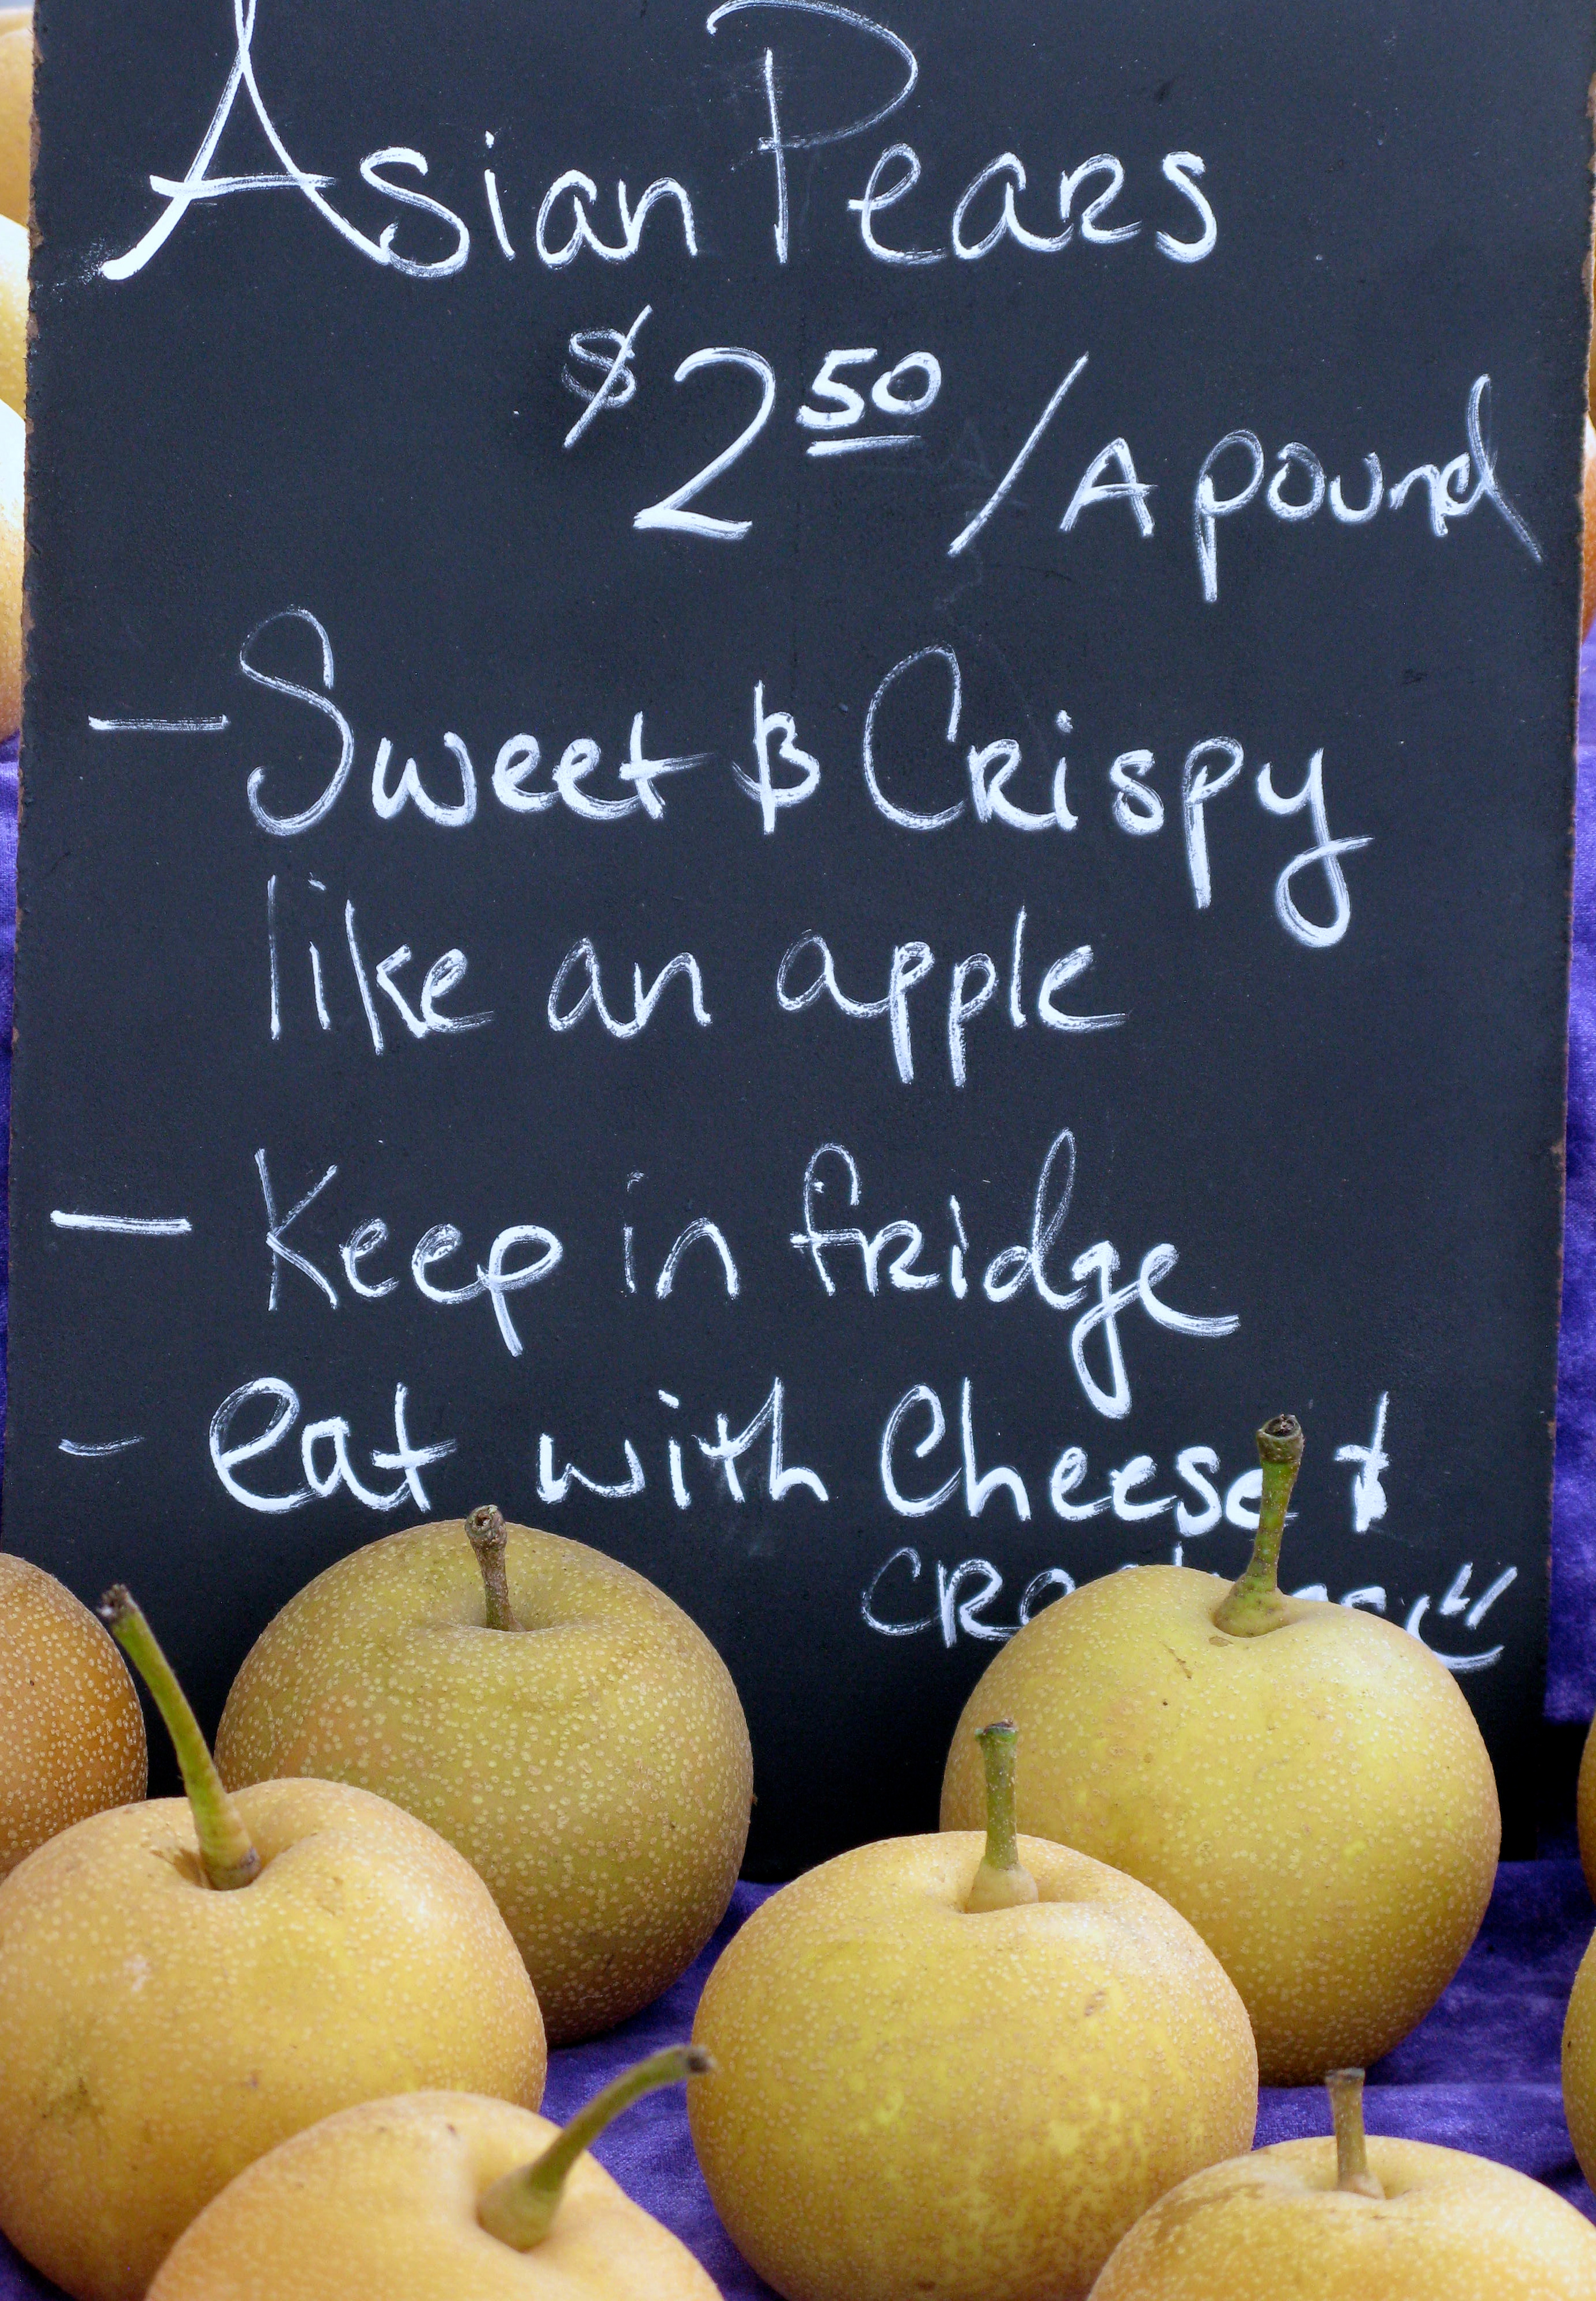 Asian Pears
$2.50/A pound
- Sweet & Crispy
like an apple
- Keep in fridge
- eat with Cheese &